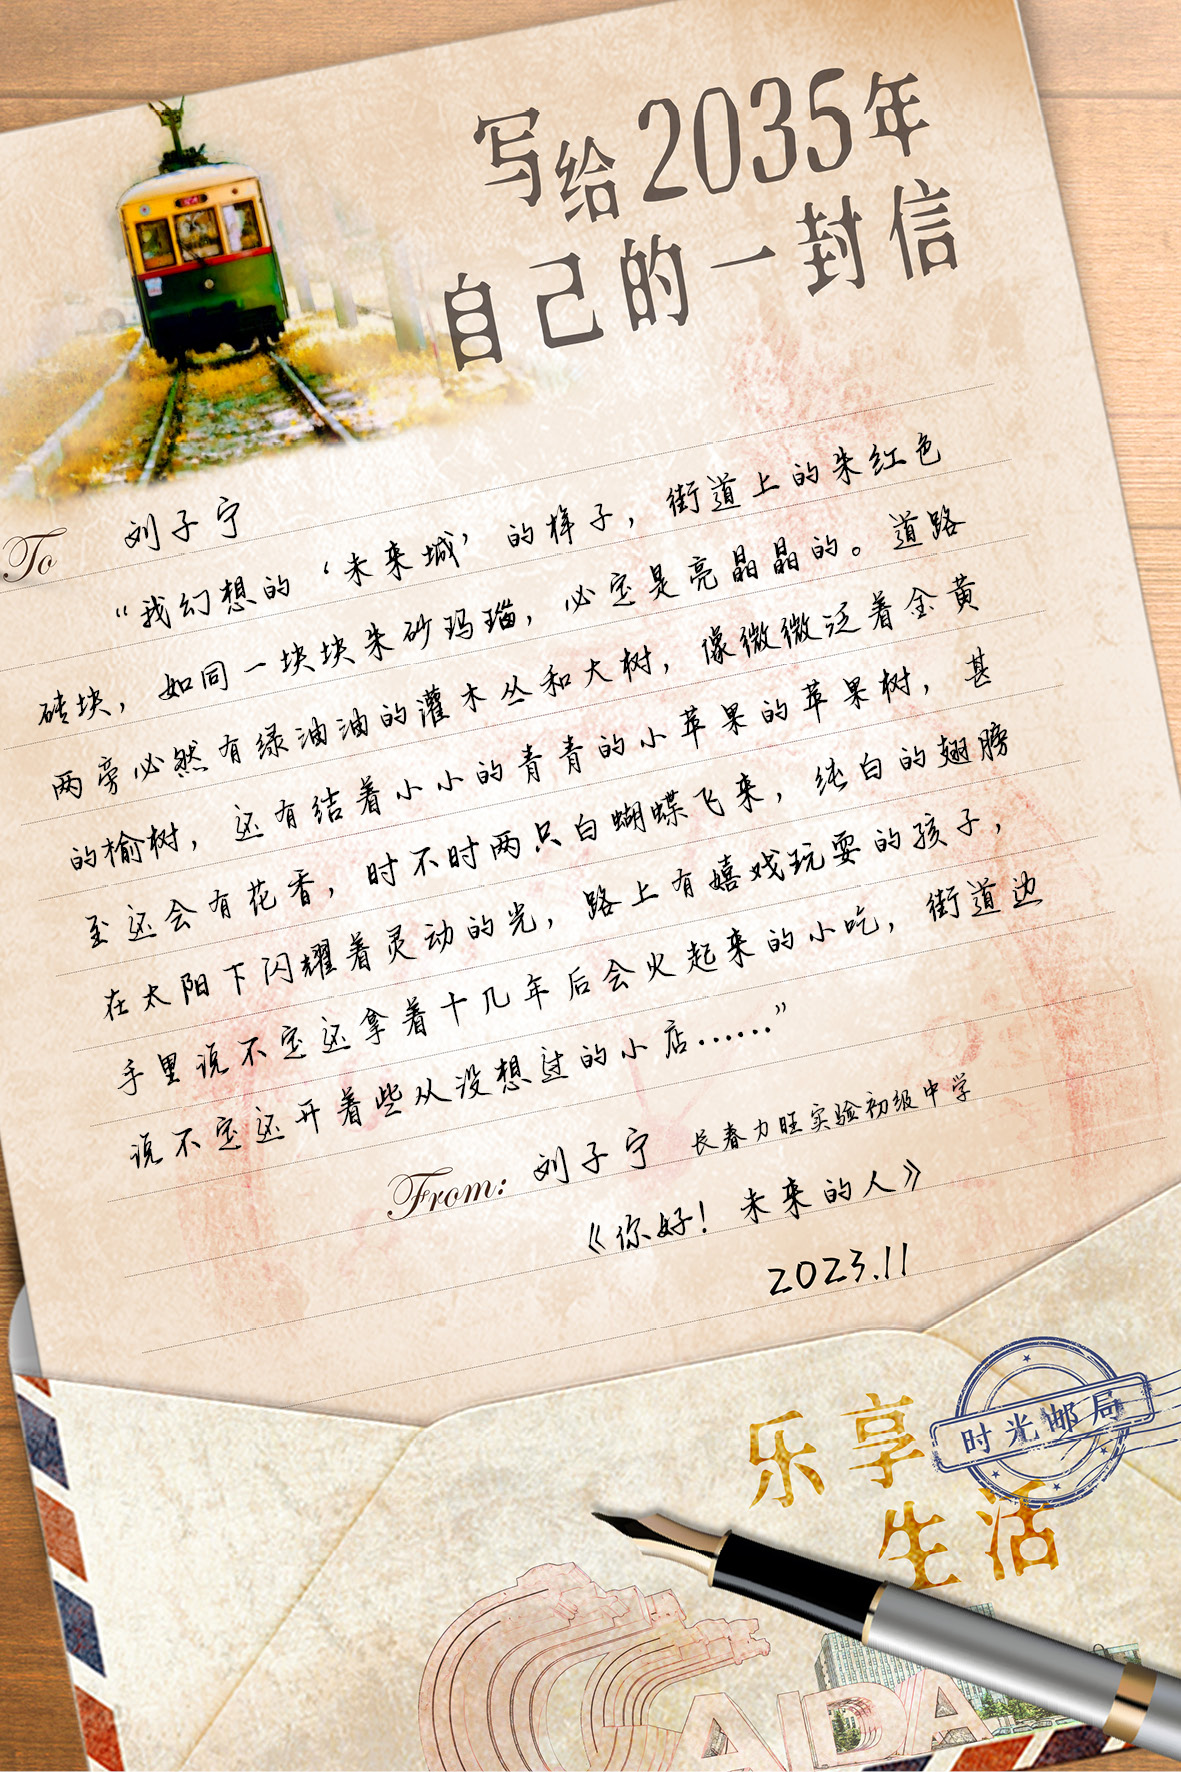 写给2035年
自己的一封信
To 刘子宁
“我幻想的‘未来城’的样子，街道上的朱红色
砖块，如同一块块朱砂玛瑙，必定是亮晶晶的。道路
两旁必然有绿油油的灌木丛和大树，像微微泛着金黄
的榆树，还有结着小小的青青的小苹果的苹果树，甚
至还会有花香，时不时两只白蝴蝶飞来，纯白的翅膀
在太阳下闪耀着灵动的光，路上有嬉戏玩耍的孩子，
手里说不定还拿着十几年后会火起来的小吃，街道边
说不定还开着些从没想过的小店……”
From: 刘子宁 长春力旺实验初级中学
《你好！未来的人》
2023.11
时光邮局
乐享
生活
CAIDA